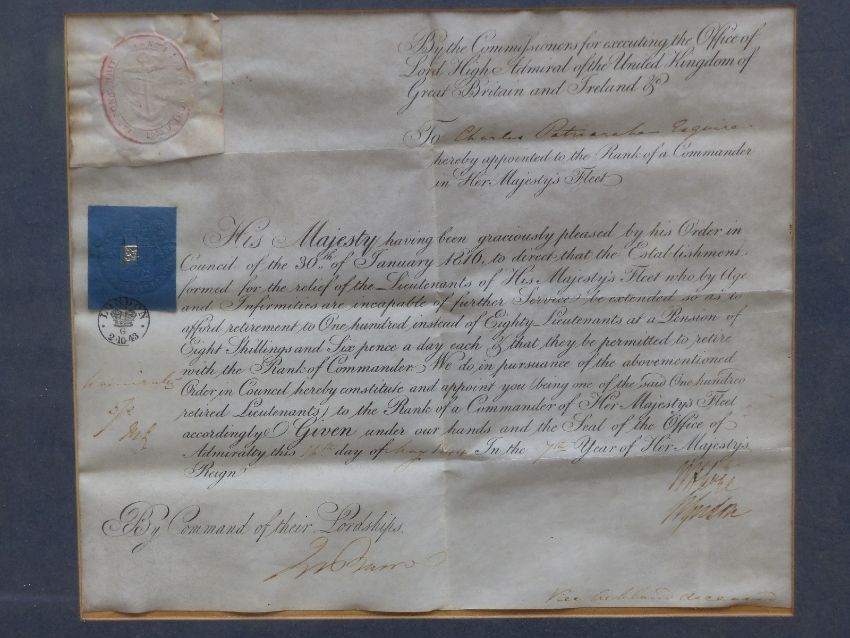 By the Commissioners for executing the Office of
Lord High Admiral of the United Kingdom of
Great Britain and Ireland &c
To Charles Esquire
hereby appointed to the Rank of a Commander
in Her Majesty's Fleet
His Majesty having been graciously pleased by his Order in
Council of the 30th of January 1816, to direct that the Establishment
formed for the relief of the Lieutenants of His Majesty's Fleet who by Age
and Infirmities are incapable of further Service be extended so as to
afford retirement to One hundred instead of Eighty Lieutenants at a Pension of
Eight Shillings and Six pence a day each & that they be permitted to retire
with the Rank of Commander We do in pursuance of the abovementioned
Order in Council hereby constitute and appoint you (being one of the said One hundred
retired Lieutenants) to the Rank of a Commander of Her Majesty's Fleet
accordingly Given under our hands and the Seal of the Office of
Admiralty this day of In the 7th Year of Her Majesty's
Reign
By Command of their Lordships.
LONDON
G
2.10.43
Vice deceased